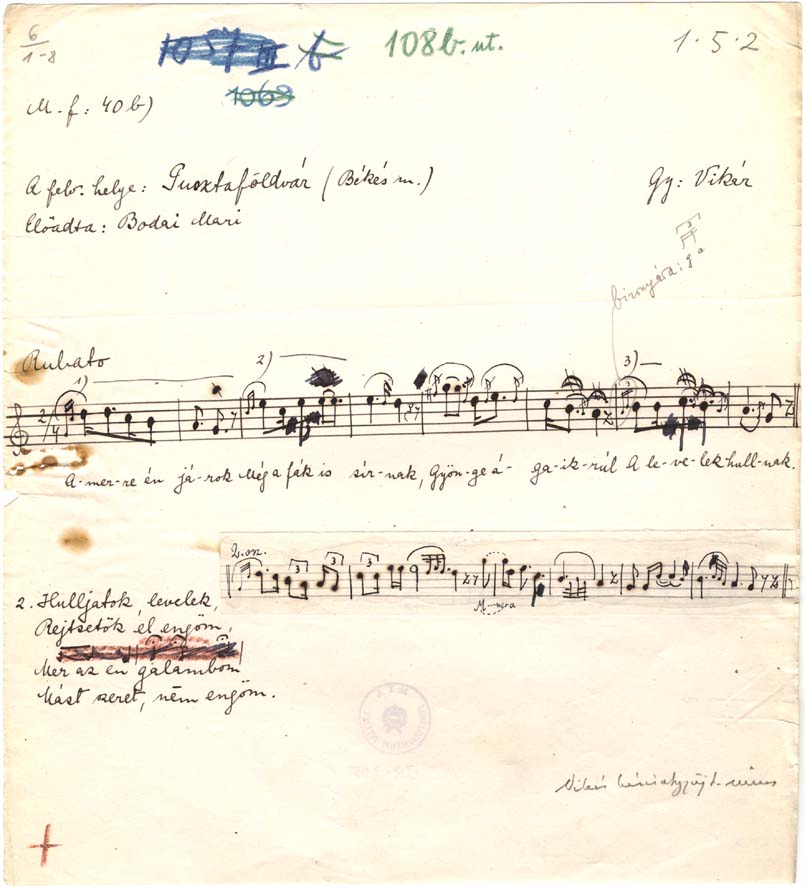 6
1-8
1057 III b
108b. ut.
1·5·2
1063
M. f: 40 b)
A felv. helye: Pusztaföldvár (Békés m.)
Gy: Vikár
Előadta: Bodai Mari
3
bizonyára: 8a
Rubato
1)
2)
3)
2/4
A-mer-re én já-rok Még a fák is sír-nak, Gyön-ge á-ga-ik-rúl A le-ve-lek hull-nak.
2. vsz.
3
3
3
2. Hulljatok, levelek,
Rejtsetők él engöm,
Mer az én galambom
Mást szeret, ném engöm.
Vikár